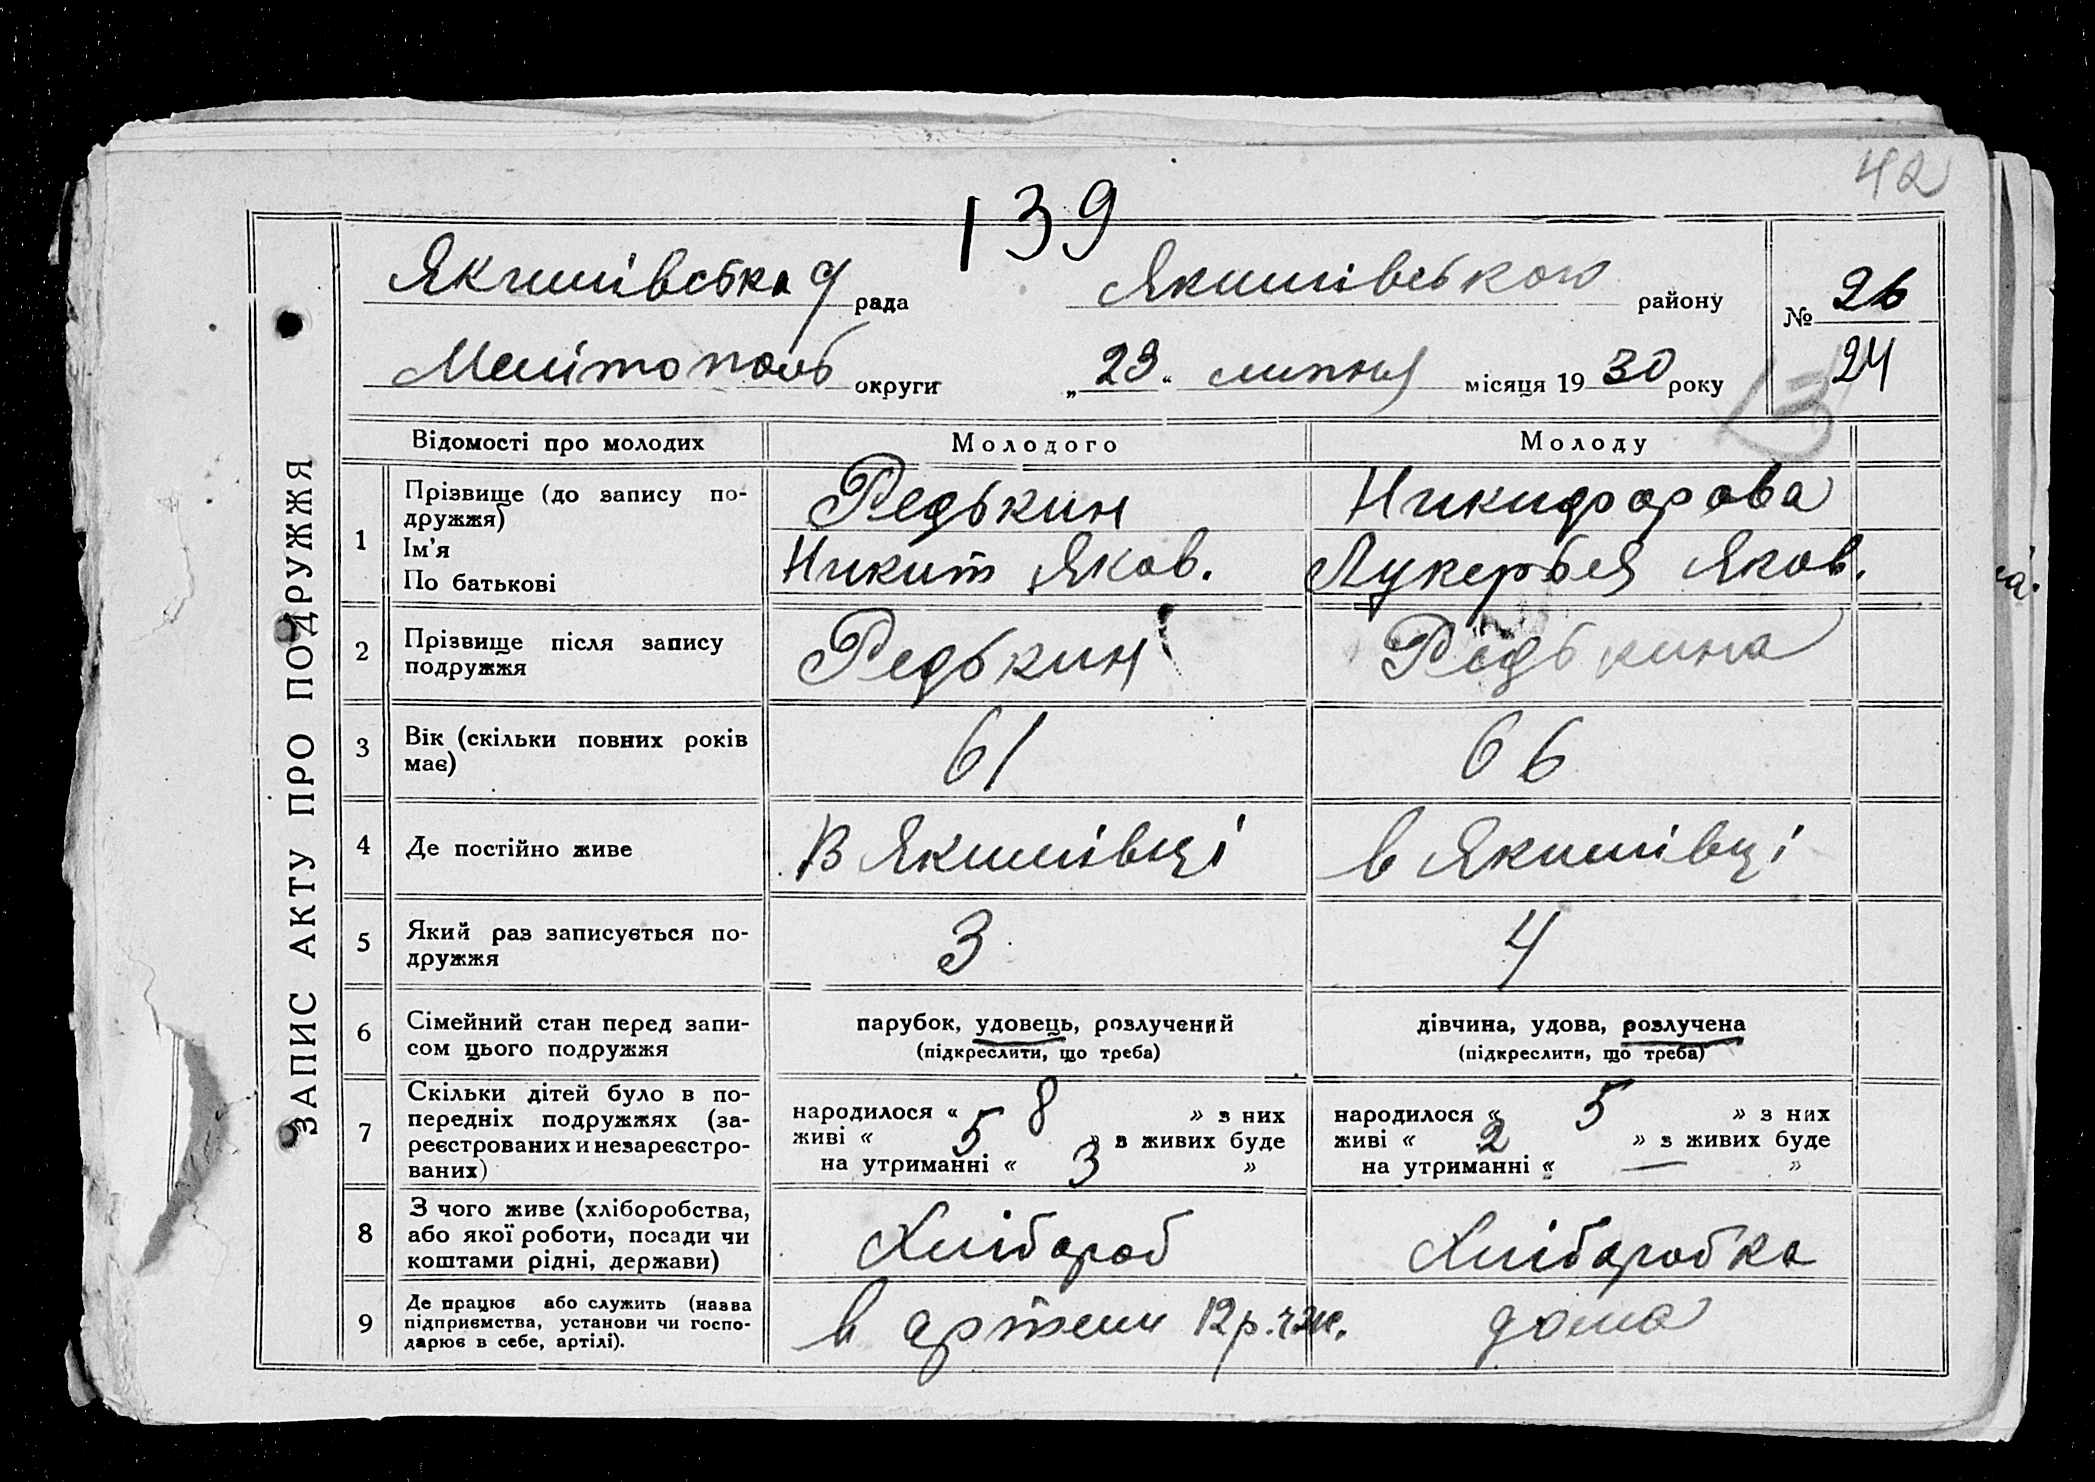 42
139
Якимівська рада Якимівського району № 26
Мелітополь округи „23“ липня місяця 1930 року 24
13
ЗАПИС АКТУ ПРО ПОДРУЖЖЯ
Відомості про молодих Молодого Молоду
1 Прізвище (до запису по-
дружжя) Редькин Никифорова
Ім'я
По батькові Никит Яков. Лукерья Яков.
2 Прізвище після запису
подружжя Редькин Редькина
3 Вік (скільки повних років
має) 61 66
4 Де постійно живе В Якимівці в Якимівці
5 Який раз записується по-
дружжя 3 4
6 Сімейний стан перед запи-
сом цього подружжя
парубок, удовець, розлучений
(підкреслити, що треба)
дівчина, удова, розлучена
(підкреслити, що треба)
7 Скільки дітей було в по-
передніх подружжях (за-
реєстрованих и незареєстро-
ваних)
народилося « 8 » з них
живі « 5 » з живих буде
на утриманні « 3 »
народилося « 5 » з них
живі « 2 » з живих буде
на утриманні « — »
8 З чого живе (хліборобства,
або якої роботи, посади чи
коштами рідні, держави)
Хлібороб Хліборобка
9 Де працює або служить (назва
підприємства, установи чи госпо-
дарює в себе, артілі).
в артели 12 р. дома